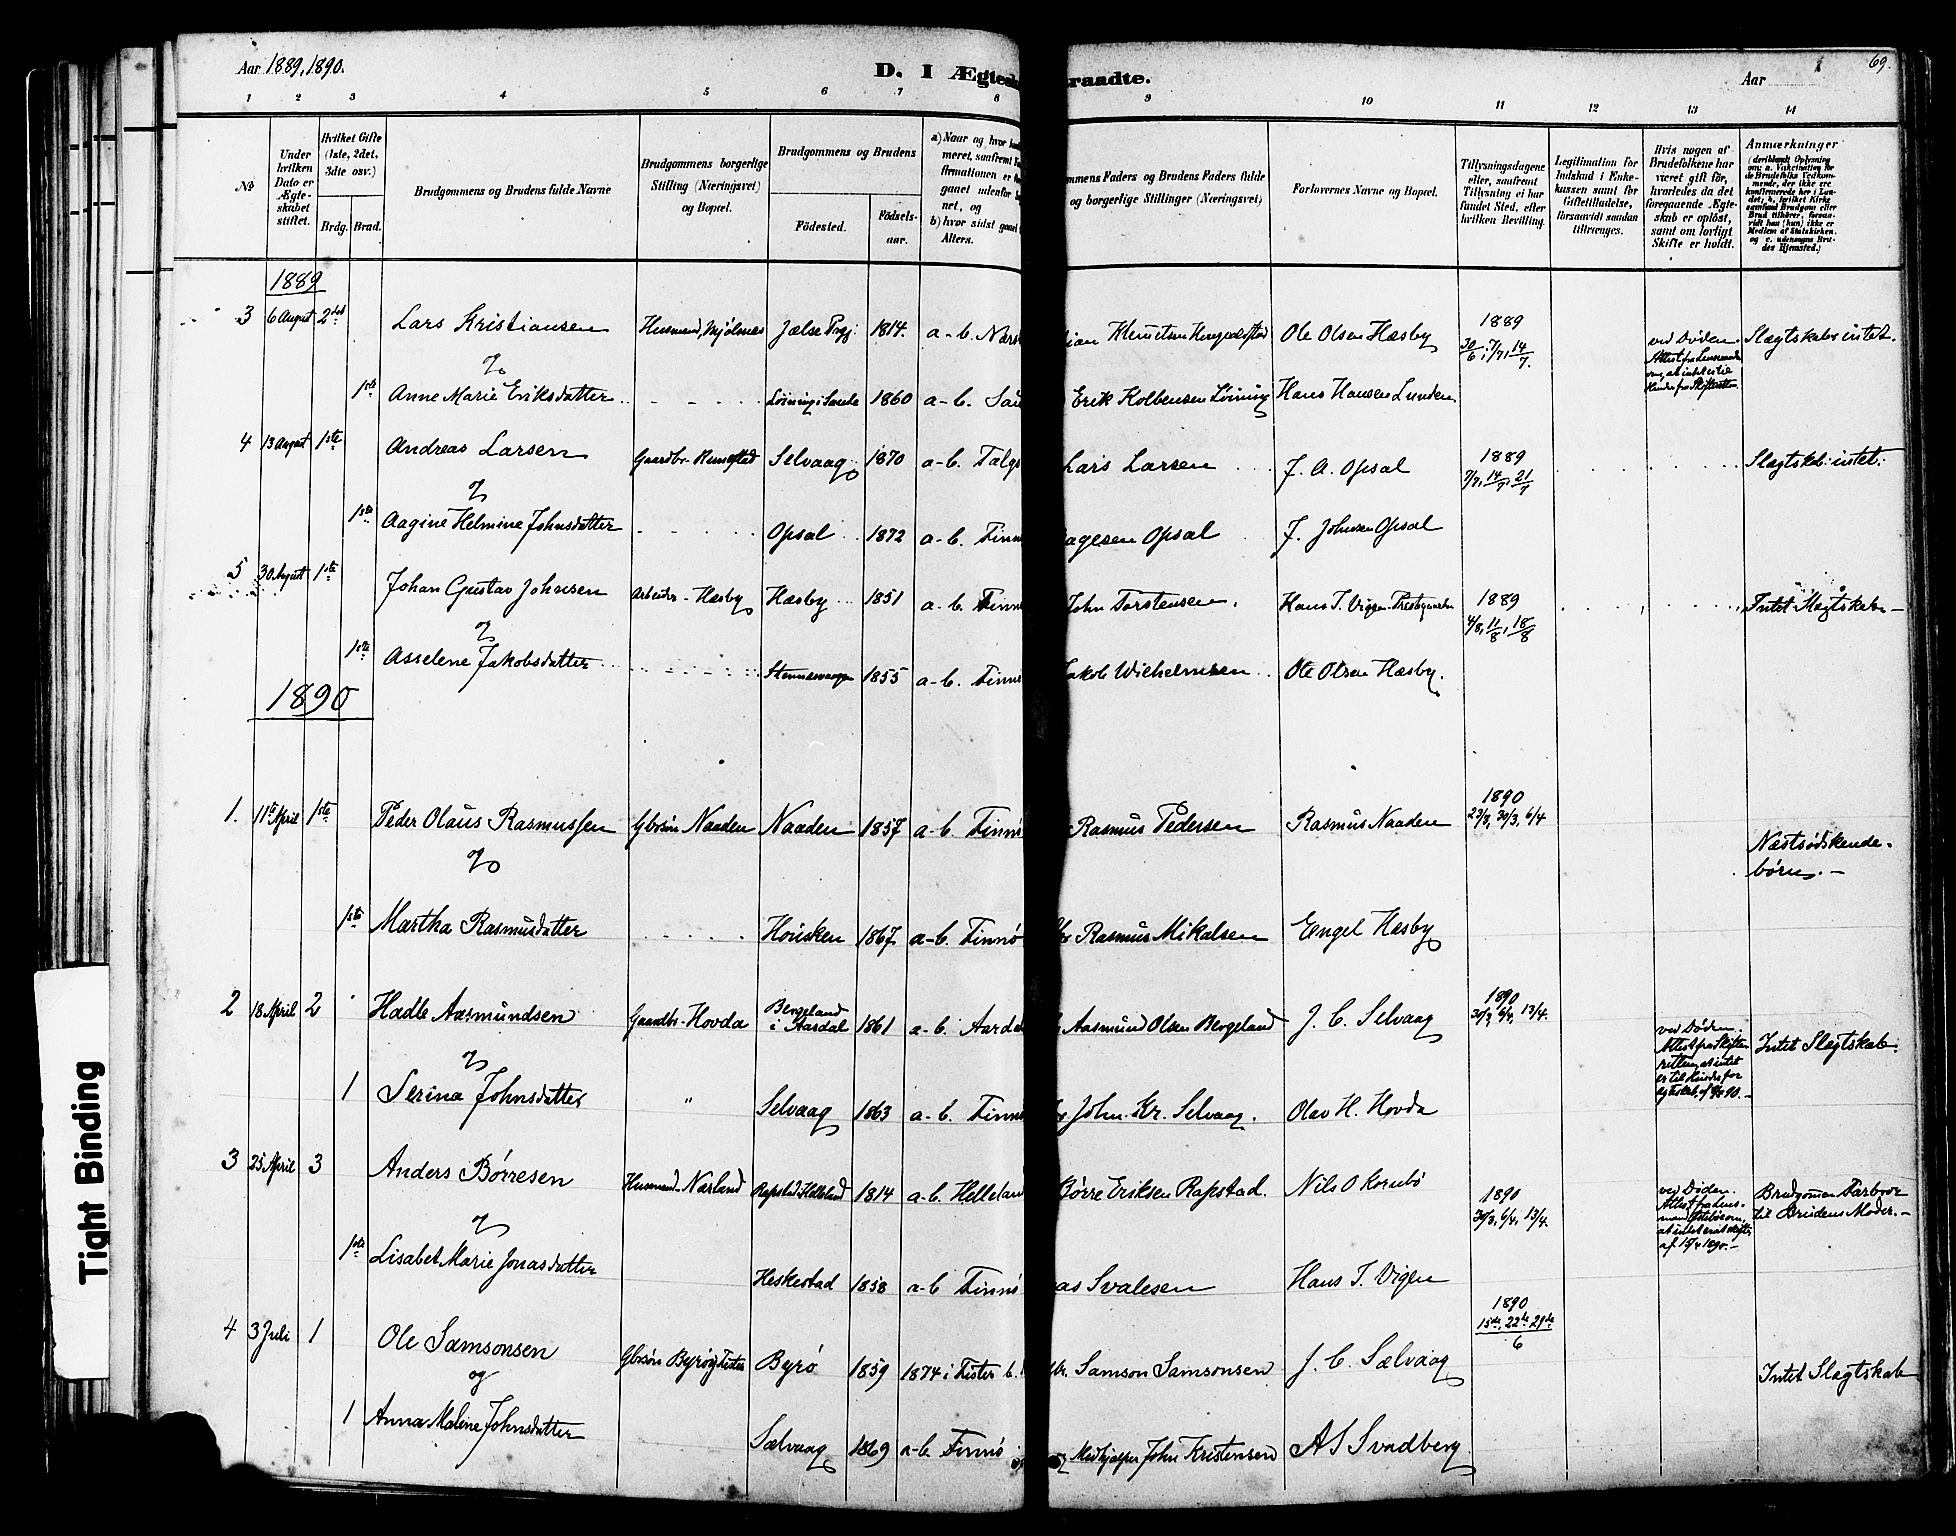 Aar 1889, 1890.
D. I Ægtesk
raadte.
Aar
69.
1 2 3 4 5 6 7 8 9 10 11 12 13 14
No
Under hvilken Dato er Ægteskabet stiftet.
Hvilket Gifte (1ste, 2det, 3die osv.)
Brdg. Brud.
Brudgommens og Brudens fulde Navne
Brudgommens borgerlige Stilling (Næringsvei) og Bopæl.
Brudgommens og Brudens
Fødested.
Fødselsaar.
a) Naar og hvor
meret, saafremt
firmationen er
gaaet udenfor
net, og
b) hvor sidst gaaet
Alters.
mmens Faders og Brudens Faders fulde
og borgerlige Stillinger (Næringsvei)
Forlovernes Navne og Bopæl.
Tillysningsdagene eller, saafremt Tillysning ei har fundet Sted, efter hvilken Bevilling.
Legitimation for Indskud i Enkekassen samt for Giftetilladelse, forsaavidt saadan tiltrænges.
Hvis nogen af Brudefolkene har været gift før, hvorledes da det foregaaende Ægteskab er opløst, samt om lovligt Skifte er holdt.
Anmærkninger
1889
3 6 August 2det Lars Kristiansen Husmand, Mjølsnes Jælse Prgj: 1814. a-b. Nærst
ian Knutsen Ole Olsen Hæsby 1889 30/6, 7/7, 14/7. ved Døden. Slægtskab: intet.
og
1ste Anne Marie Eriksdatter 1860 a-b. Sau
Erik Kolbensen Løining Hans Hansen Lunden
4 13 August 1ste Andreas Larsen Gaardbr. Selvaag 1870 a-b. Talg
Lars Larsen J. A. Opsal 1889 7/7, 14/7, 21/7 Slægtskab: intet.
og
1ste Aagine Helmine Johnsdatter Opsal 1872 a-b. Finn
agesen Opsal J. Johnsen Opsal
5 30 August 1ste Johan Gustav Johnsen Arbeider - Hæsby Hæsby 1851 a-b. Finn
John Torstensen. Hans T. Viggen 1889 4/8, 11/8, 18/8 Intet Slægtskab.
og
1ste Asselene Jakobsdatter 1855 a-b. Finn
Jakob Wilhelmsen Ole Olsen Hæsby.
1890
1. 11te April 1ste Peder Olaus Rasmussen Gbrsøn Naaden Naaden 1857 a-b. Finnø
Rasmus Pedersen Rasmus Naaden 1890 23/3, 30/3, 6/4 Næstsødskendebørn.
og
1ste Martha Rasmusdatter Housken 1867 a-b. Finnø
Rasmus Mikalsen Engel Hæsby
2 18 April 2 Hadle Aasmundsen Gaardbr. Hovda Bergeland i Aardal 1861 a-b. Aarda
Aasmund Olsen Bergeland J. C. Selvaag 1890 30/3, 6/4, 13/4. ved Døden. Intet Slægtskab.
og
1 Serina Johnsdatter " Selvaag 1863 a-b. Finnø
John Kr. Selvaag. Olav H. Hovda
3 25 April 3 Anders Børresen Husmand Nærland Rapstad i Helleland 1814 a-b. Hellelan
Børre Eriksen Rapstad. Nils O Kornbø 1890 30/3, 6/4, 13/4. ved Døden. Brudgommen Farbror til Brudens Moder.
og
1ste Lisabet Marie Jonasdatter Heskestad 1858 a-b Finnø
as Svalesen Hans T. Vigen
4 3 Juli 1 Ole Samsonsen Gbrsøn Byrø, Fister Byrø 1859 1874 i Fister b.
br. Samson Samsonsen J. C. Sælvaag 1890 15de, 22de 29de/6 Intet Slægtskab
og
1 Anna Malene Johnsdatter Sælvaag 1869 a-b. Finnø
Medhjelper John Kristensen A S Svadberg
Tight Binding